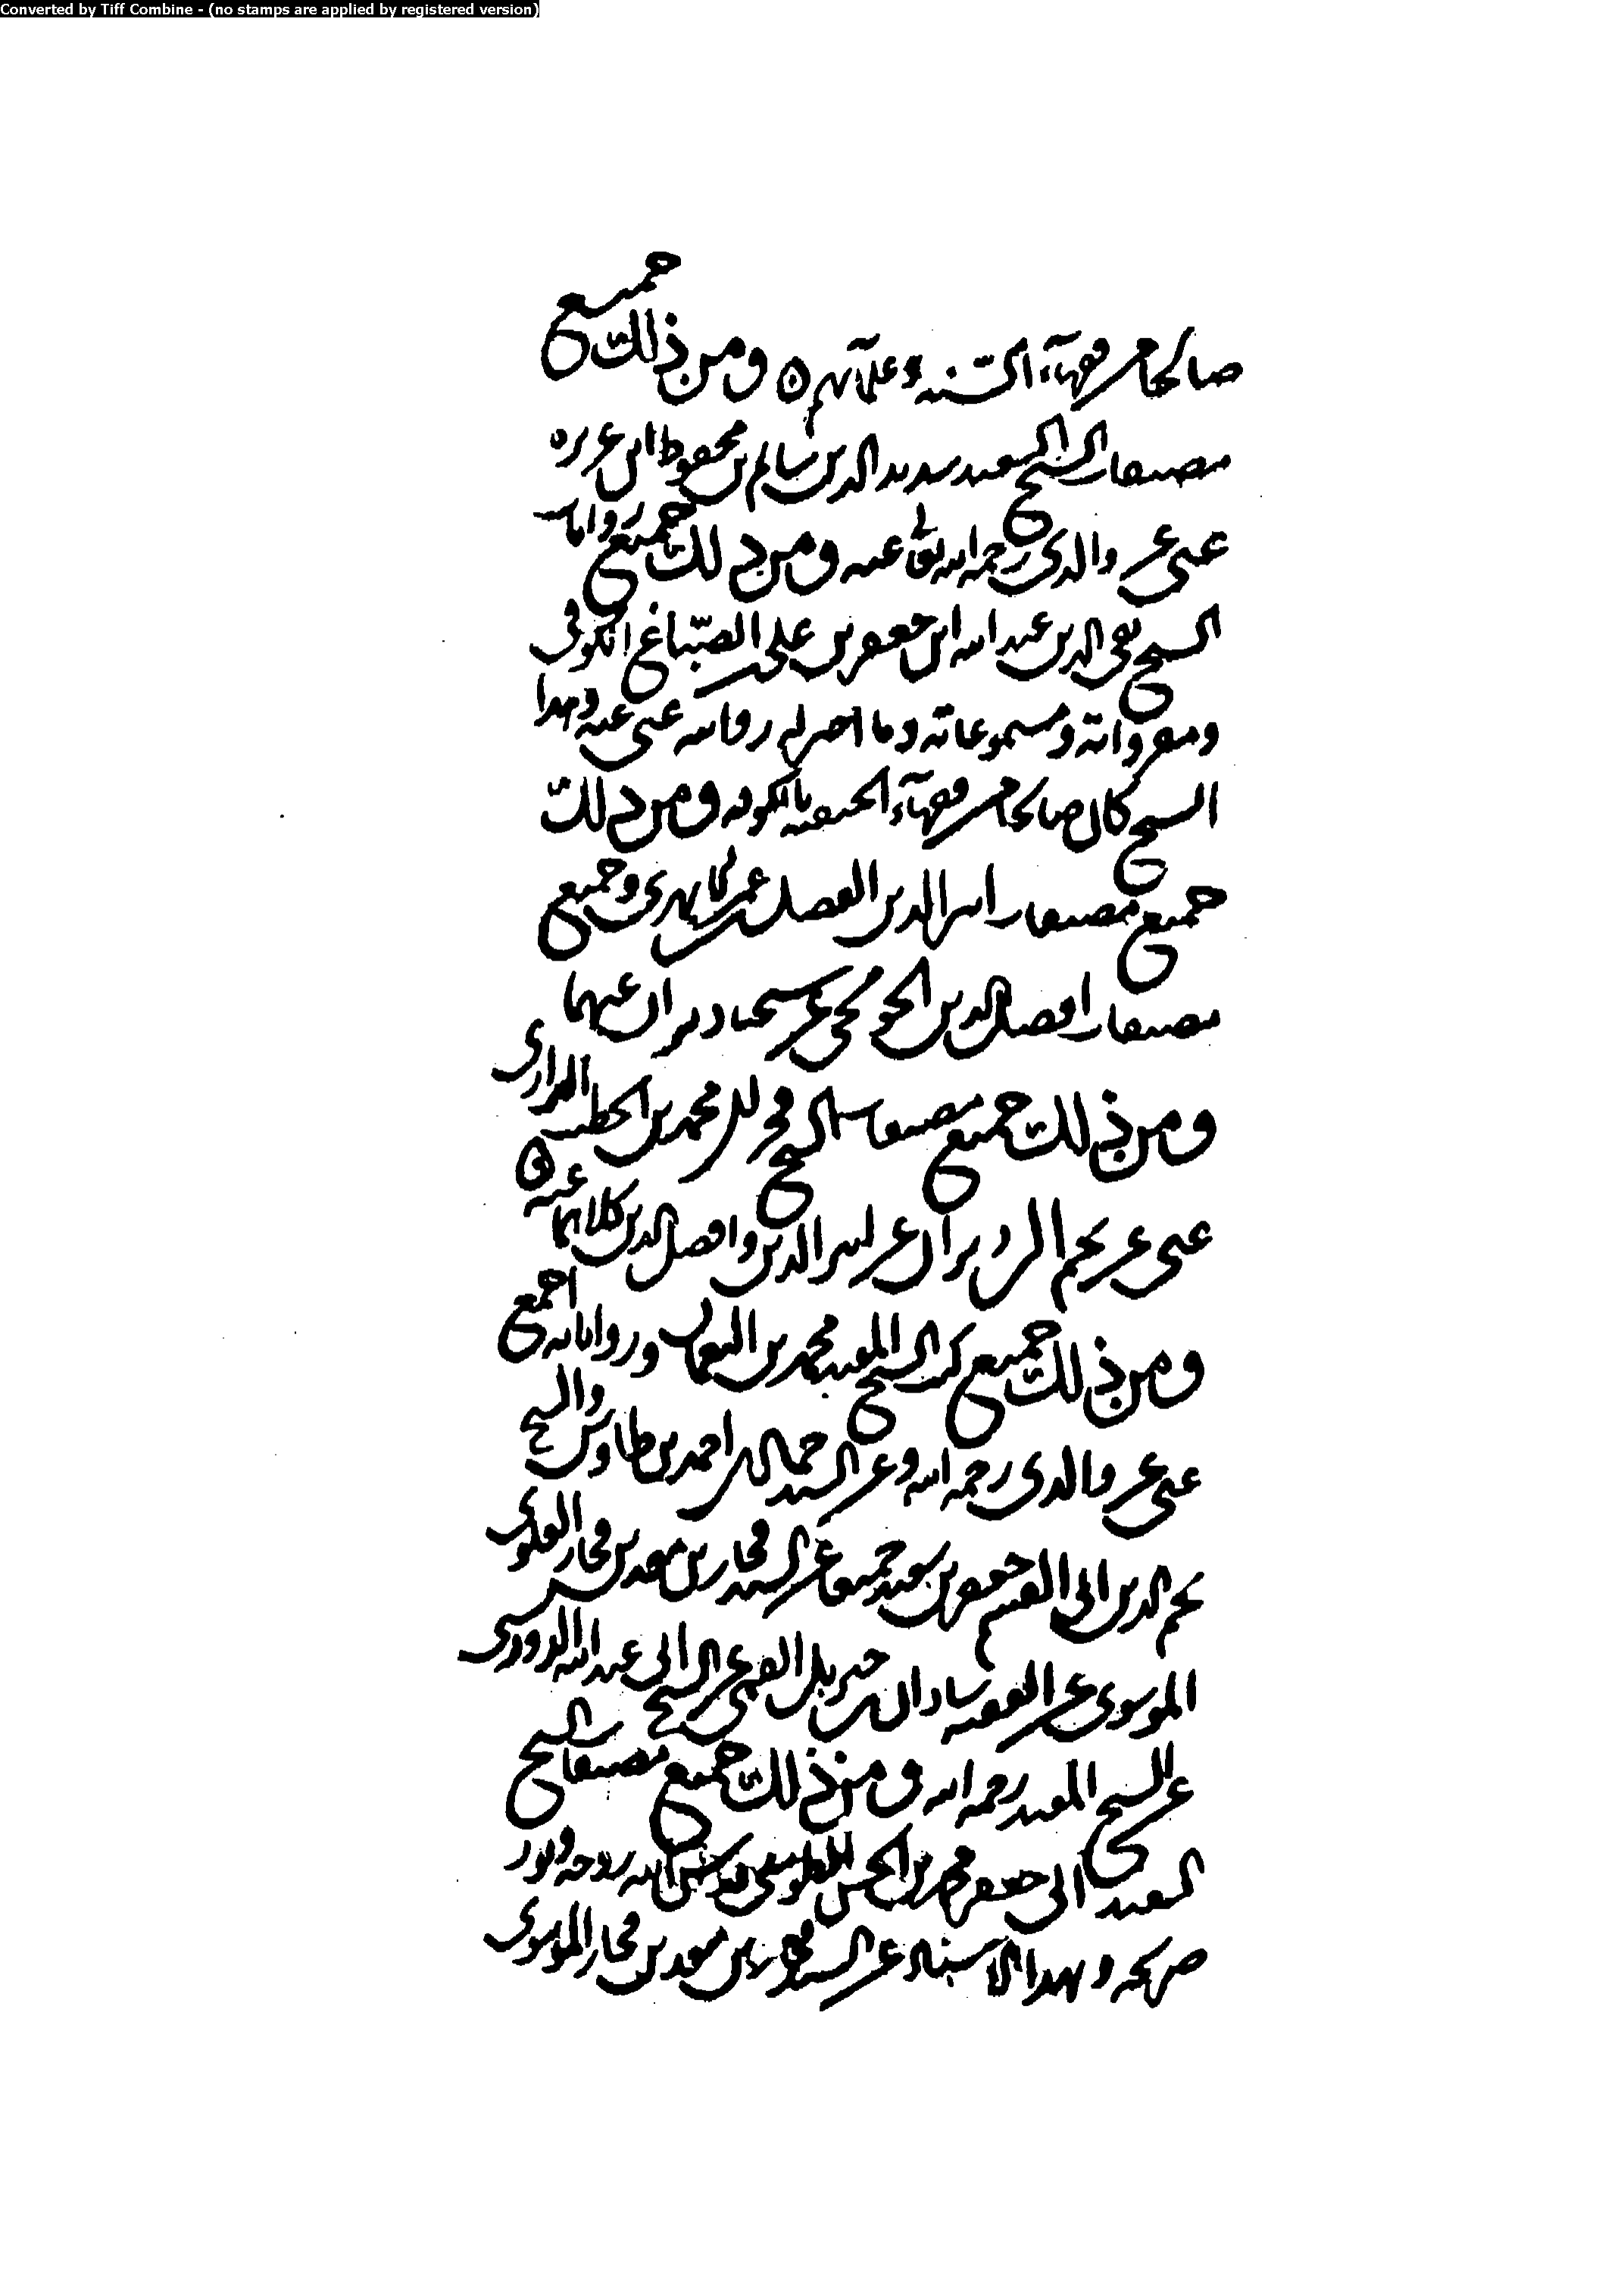 Converted by Tiff Combine - (no stamps are applied by registered version)
صالحا من فقهآء السنه وعلمآئهم ومن ذلك جميع
مصنفات الشيخ السعيد سديد الدين سالم بن محفوظ ابن عزيزه
عنى عن والدى رحمه الله تعالى عنه ومن ذلك جميع روايات
الشيخ تقى الدين عبد الله ابن جعفر بن على الصبّاغ الكوفى
ومقرواته ومسموعاته وما اجيز له روايته عنى عنه وهذا
الشيخ كان صالحا من فقهآء الحنفيه بالكوفه ومن ذلك
جميع مصنفات اثير الدين الفضل عمر الابهرى وجميع
مصنفات افضل الدين الخونجى عن شيخنا دبيران عنهما
ومن ذلك جميع مصنفات الشيخ فخر الدين محمد بن الخطيب الرازى
عنى عن نجم الدين دبيران عن اثير الدين وافضل الدين كلاهما عنه
ومن ذلك جميع كتب الشيخ المفيد محمد بن النعمان ورواياته اجمع
عنى عن والدى رحمه الله وعن السيد جمال الدين احمد بن طاوس والشيخ
نجم الدين ابى القسم جعفر بن سعيد جميعا عن السيد فخار بن معد بن فخار العلوى
الموسوى عن الفقيه شاذان بن جبريل القمى عن الشيخ ابى عبد الله الدوريستى
عن الشيخ المفيد رحمه الله ومن ذلك جميع مصنفات الشيخ
السعيد ابى جعفر محمد بن الحسن الطوسى قدس الله روحه ونور
ضريحه وبهذا الاسناد عن السيد فخار بن معد بن فخار الموسوى